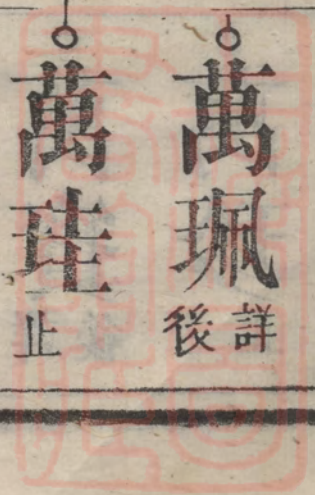 萬珮詳後
萬珪止